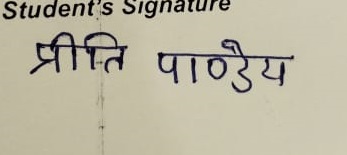 Student's Signature
प्रीति पाण्डैय